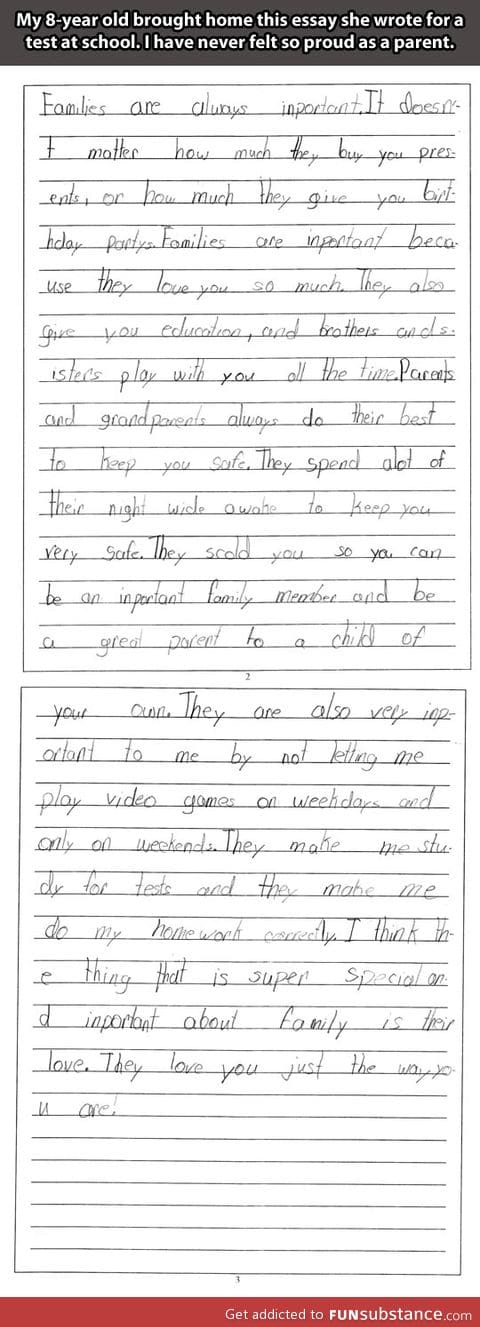 My 8-year old brought home this essay she wrote for a
test at school. I have never felt so proud as a parent.
Families are always inportant.It doesn'-
t matter how much they buy you pres-
ents, or how much they give you birt-
hday partys.Families are inportant beca-
use they love you so much. They also
give you education, and brothers and s-
isters play with you all the time.Parents
and grandparents always do their best
to keep you safe. They spend alot of
their night wide awake to keep you
very safe. They scold you so you can
be an inportant family member and be
a great parent to a child of
2
your own. They are also very inp-
ortant to me by not letting me
play video games on weekdays and
only on weekends. They make me stu-
dy for tests and they make me
do my homework correctly. I think th-
e thing that is super special an-
d inportant about family is their
love. They love you just the way yo-
u are!
3
Get addicted to FUNsubstance.com!